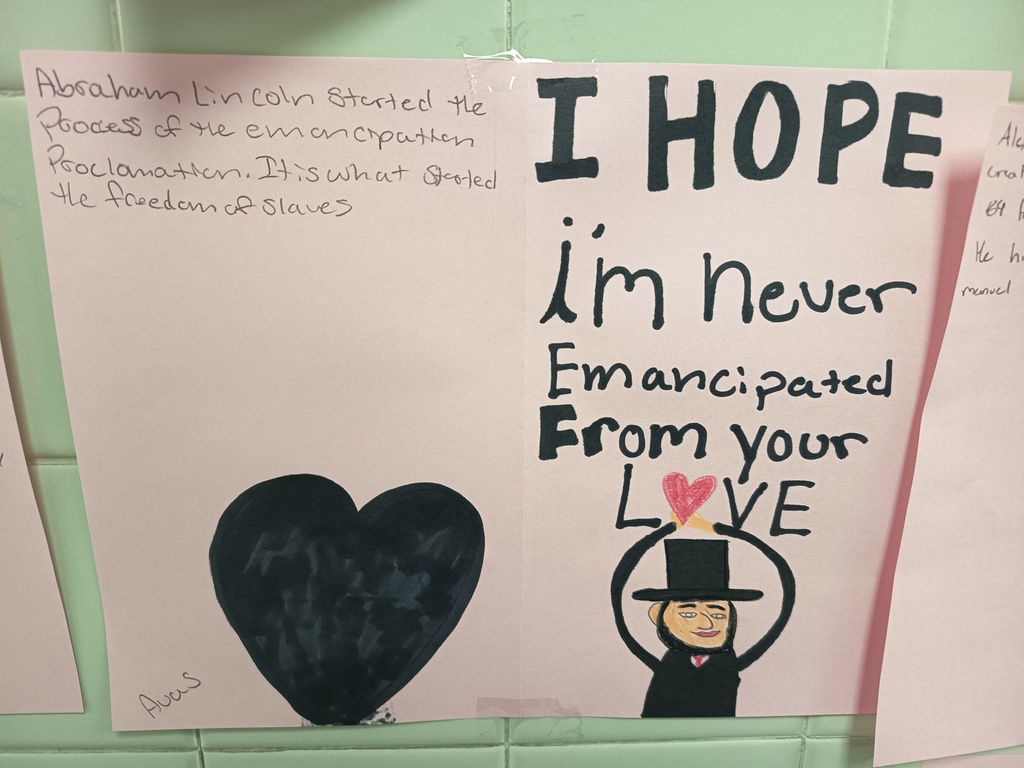 Abraham Lincoln Started the
Process of the emancipation
Proclamation. It is what Started
the freedom of slaves
I HOPE
i'm never
Emancipated
From your
L❤VE
He
manuel